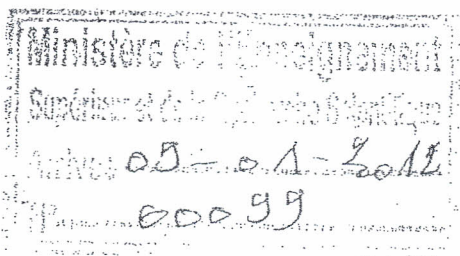 Ministère de l'Enseignement
Supérieur et de la Recherche Scientifique
Arrivée 05-01-2012
N° 00099